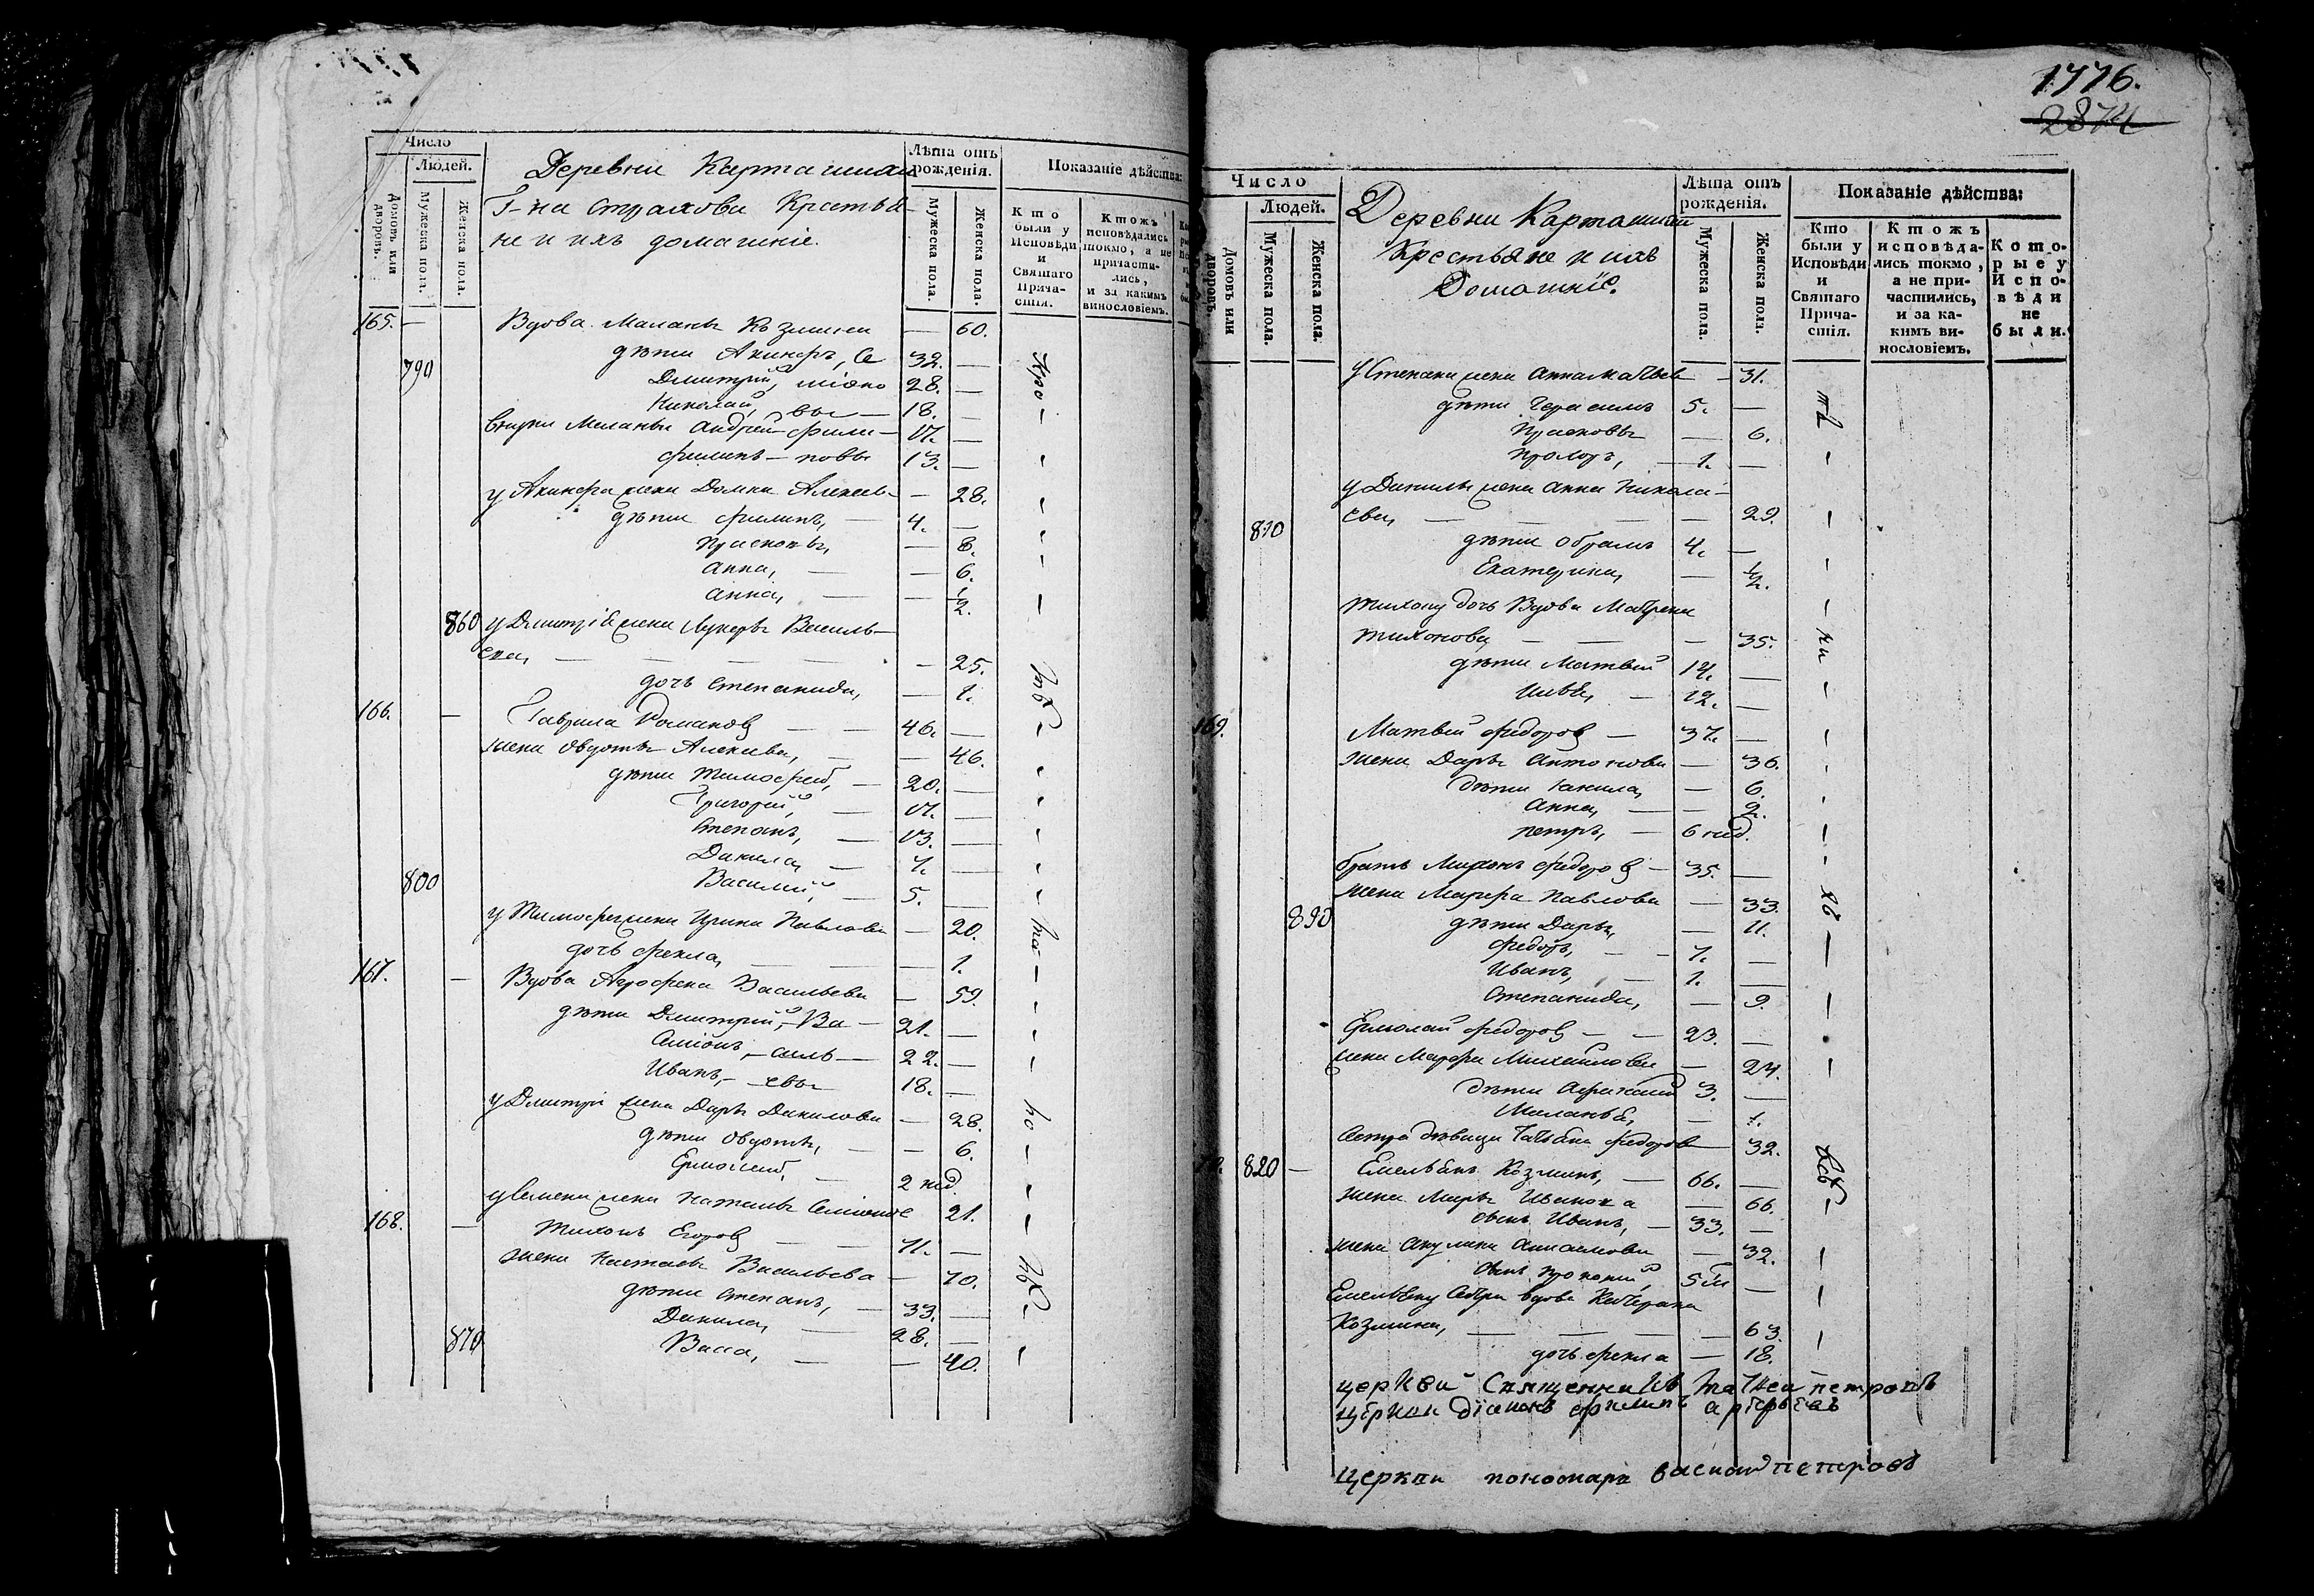 Число
Людей.
Домовъ или дворовъ.
Мужеска пола.
Женска пола.
Деревни Карташихи
Г-на страхова Крестья-
не и ихъ домашніе.
Лѣта отъ рожденія.
Мужеска пола.
Женска пола.
Показаніе дѣйства:
Кто были у Исповѣди и Святаго Прича-стія.
Ктожъ исповѣдались токмо, а не причасти-лись, и за какимъ винословіемъ.
165. — Вдова Маланья Козмина — 60.
дѣти Акинфъ, Се 32. —
790 Дмитрий, міоно 28. —
Николай, вы — 18. —
Внуки Маланьи Андрей Фили— 17. —
филипъ — повы 13. —
у Акинфа жена Домна Алексее— — 28.
дѣти филипъ, — 4. —
Прасковья, — 8.
Анна, — — 6.
Анна, — — 1/2.
860 у Дмитрія жена Лукерья Василь—
ева, — — — — 25.
дочь степанида, — 1.
166. — Гаврила Романов — — 46. —
жена Овдотья Алексева, — — 46.
дѣти Тимофей, — 20. —
Григорей, — 17. —
Степанъ, — 13. —
Данила, — 7. —
800 Василий, — 5. —
у Тимофея жена Ирина Павлова — 20.
дочь фекла, — — 1.
167. — Вдова Агрофена Васильева — 59.
дѣти Дмитрий, — Ва — 21. —
Семіонъ, — силь — 22. —
Иванъ, — евы 18. —
у Дмитрія жена Дарья Данилова — 28.
дѣти Овдотья, — — 6.
Ермолай, — 2 нед.
у Семена жена Наталья Семіонов 21.
168. — Тихонъ Егоров — — 71. —
жена Настасья Васильева — 70.
дѣти степанъ, — 33. —
Данила, — 28. —
870 Васса, — — 40.
1776.
2874
Число
Людей.
Домовъ или дворовъ
Мужеска пола.
Женска пола.
Деревни Карташихи
Крестьяне и ихъ
Домашніе.
Лѣта отъ рожденія.
Мужеска пола.
Женска пола.
Показаніе дѣйства:
Кто были у Исповѣди и Святаго Прича-стія.
Ктожъ исповѣда-лись токмо, а не при-частились, и за ка-кимъ ви-нословіемъ.
Кото-рые у Испо-вѣди не были.
у Степана жена Анна Матвев — 31.
дѣти Герасимъ 5. —
Прасковья — 6.
Фролъ, — 1. —
у Данилы жена Анна Никола—
ева, — — — — 29.
810 дѣти Обрамъ 4. —
Екатерина, — 1/2.
Тихону дочь Вдова Матрена
Тихонова, — — — 35.
дѣти Матвей 14. —
Илья, — 12. —
169. Матвей Федоров — 37. —
жена Дарья Антонова — 36.
дѣти — 6.
Анна, — — 2.
петръ, — 6 нед.
братъ Миронъ Федоров — 35. —
жена Марфа Павлова — 33.
890 дѣти Дарья, — 11.
Федотъ, — — 7. —
Иванъ, — 1. —
Степанида, — 9.
Ермолай Федоров — — 23. —
жена Марфа Михайлова — 24.
дѣти 3. —
Маланья, — 1.
Сестра дѣвица Татьяна Федоров — 32.
820 — Емельянъ Козминъ, — 66. —
жена Марья Иванова — 66.
сынъ Иванъ, — 33. —
жена Акулина — 32.
сынъ 5 —
Емельяну Сестра вдова Катерина
Козмина, — — — — 63.
дочь фекла — 18.
церкви Священникъ Матвеи петровъ
церкви діаконъ филипъ
церкви пономарь василей петровъ